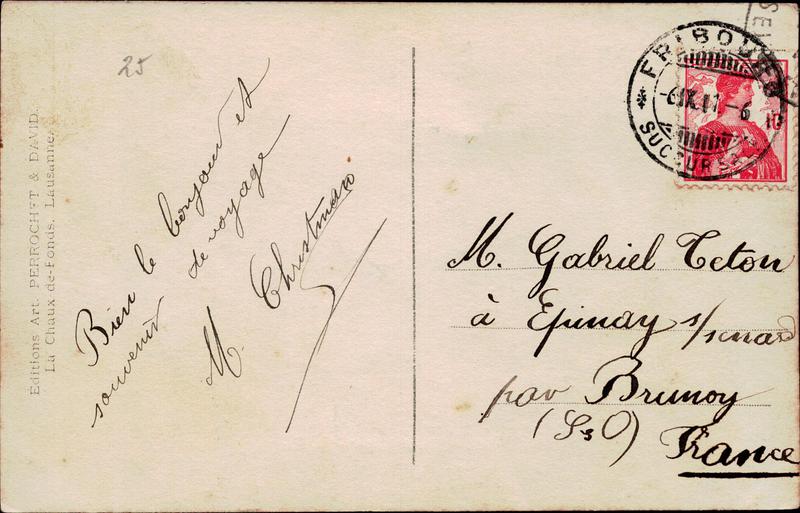 25
Editions Art. PERROCHET & DAVID.
La Chaux-de-Fonds, Lausanne.
Bien le bonjour et
souvenir de voyage
M. Christman
FRIBOURG
-6.IX.11-6
SUCCURSALE
10
M. Gabriel Teton
à Epinay s/senard
par Brunoy
(S&O)
France